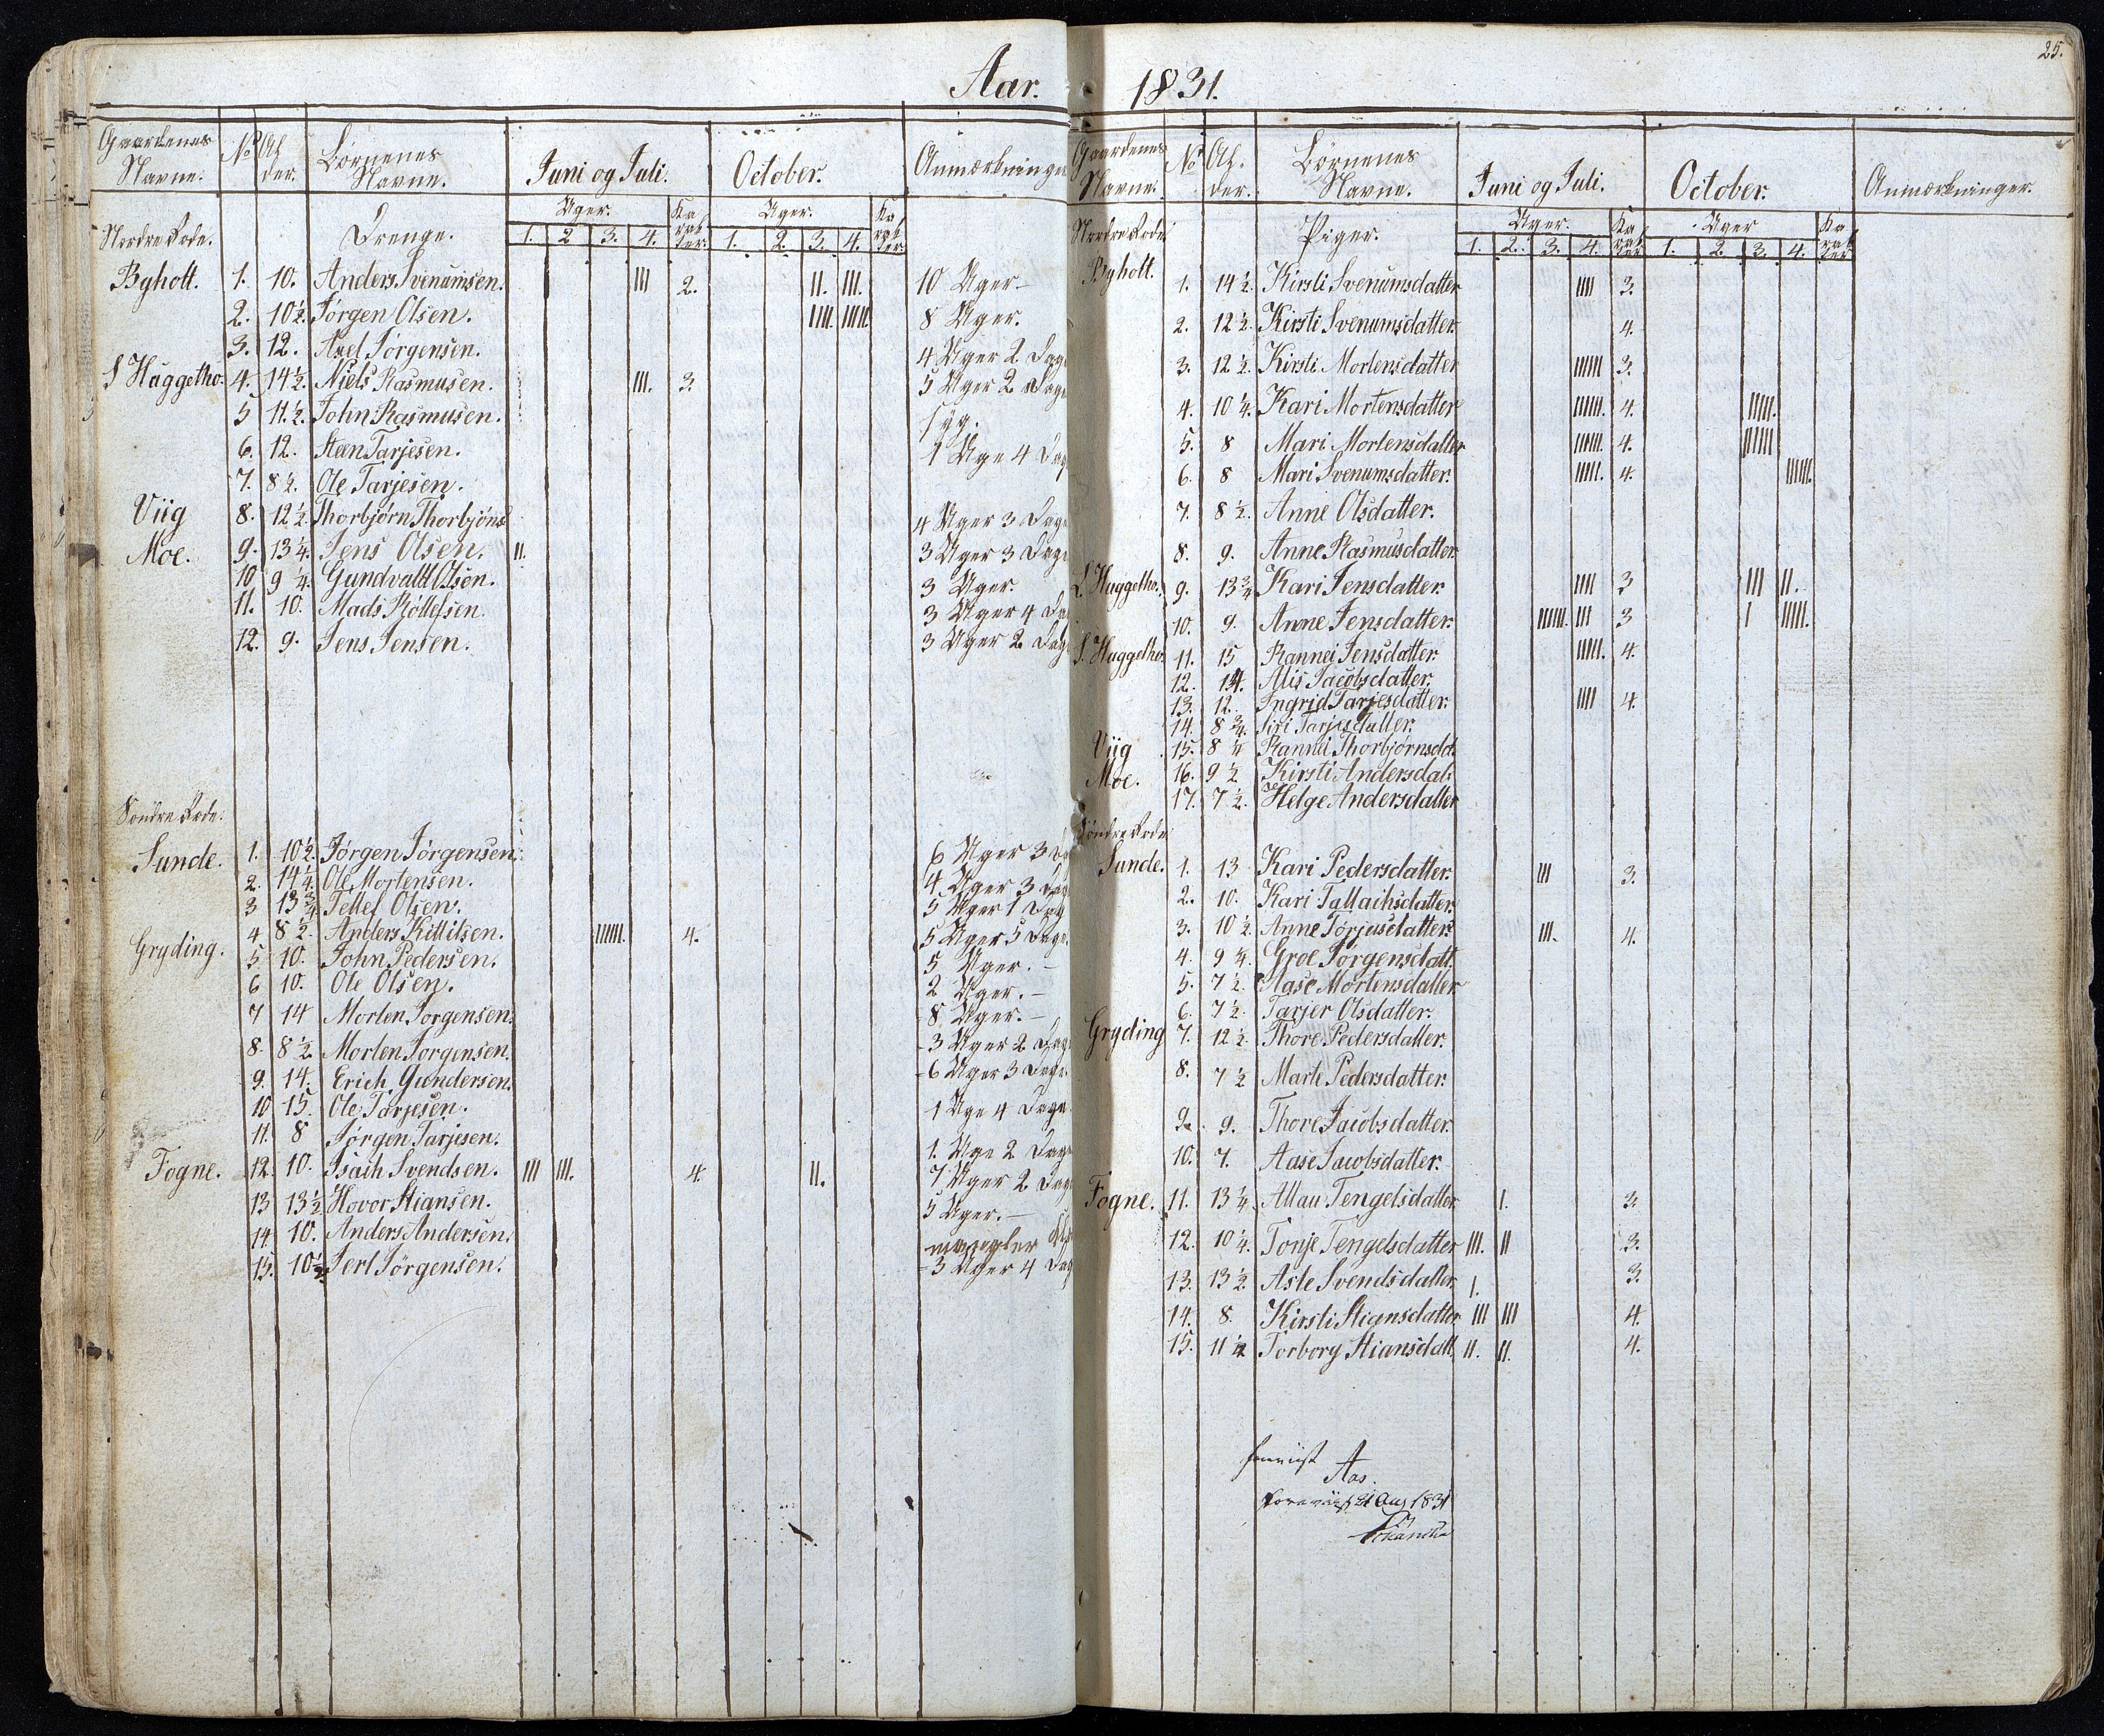 Aar.
Gaardenes Navne. No Al der. Børnenes Navne. Juni og Juli. October. Anmærkninge
Uger. Ka rak ter. Uger. Ka rak ter.
Nordre Rode. Drenge. 1. 2 3. 4. 1. 2. 3. 4.
Byholt. 1. 10. Anders Svenumsen. III 2. II. III. 10 Uger.
2. 10½. Jørgen Olsen. IIII. IIIII. 8 Uger.
3. 12. Axel Jørgensen. 4 Uger 2 Dage
S Haggelho. 4. 14½. Niels Rasmusen. III. 3. 5 Uger 2 Dage
5 11.½. John Rasmusen. syg.
6. 12. Steen Tarjesen. 1 Uge 4 Dag
7. 8½. Ole Tarjesen.
Viig 8. 12½. Thorbjørn Thorbjöns 4 Uger 3 Dage
Moe. 9. 13¼. Jens Olsen. II. 3 Uger 3 Dage
10 9¼. Gundvald Olsen. 3 Uger.
11. 10. Mads Röllefsen. 3 Uger 4 Da
12. 9. Jens Jensen. 3 Uger 2 Dag
Søndre Rode.
Sunde. 1. 10½. Jørgen Jörgensen. 6 Uger 3 Da
2. 14¼. Ole Mortensen. 4 Uger 3 Dag
3 13¾ Tellef Olsen. 5 Uger 1 Dag
4 8½. Anders Kittilsen. IIIIII. 4. 5 Uger 5 Dage.
Gryding. 5 10. John Pedersen. 5 Uger.
6 10. Ole Olsen. 2 Uger.
7 14 Morten Jorgensen. 8 Uger.
8. 8½ Morten Jorgensen. 3 Uger 2 Dag
9. 14. Erich Gundersen. 6 Uger 3 Dage.
10 15. Ole Tarjesen. 1 Uge 4 Dage
11. 8 Jørgen Tarjesen. 1. Uge 2 Dage
Fogne. 12. 10. Isaih Svendsen. III III. 4. II. 7 Uger 2 Dag
13 13½ Hovor Stiansen. 5 Uger.
14 10. Anders Andersen. mangler
15. 10½ Jerl Jörgensen. 3 Uger 4 Dag
25.
1831.
Gaardenes Navne. No Al. der. Börnenes Navne. Juni og Juli. October. Anmærkninger.
Uger. Ka rak ter Uger Ka rak ter
Nordre Rode. Piger. 1. 2. 3. 4. 1. 2. 3. 4.
Byholt. 1. 14½. Kirsti Svenumsdatter IIII 3.
2. 12½. Kirsti Svenumsdatter. 4.
3. 12½. Kirsti Mortensdatter IIIII 3.
4. 10¼. Kari Mortensdatter IIIII. 4. IIIII.
5. 8 Mari Mortensdatter IIIII. 4. IIIII
6. 8 Mari Svenumsdatter. IIIII. 4. IIIII.
7. 8½. Anne Olsdatter.
8. 9. Anne Rasmusdatter.
L. Haggelho. 9. 13¾ Kari Jensdatter. IIII 3 III II.
10. 9. Anne Jensdatter. IIIIII. III 3 I IIIII.
S. Haggelho. 11. 15 Rannei Jensdatter. IIIII. 4.
12. 14. Alis Jacobsdatter.
13. 12. Ingrid Tarjesdatter. IIII 4.
14. 8¾. Siri Tarjesdatter.
Viig 15. 8¼ Rannei Thorbjørnsdd.
Moe. 16. 9½ Kirsti Andersdat
17. 7½. Helge Andersdatter
Søndre Rode
Sunde. 1. 13 Kari Pedersdatter. III 3.
2. 10. Kari Tallaihsdatter.
3. 10½ Anne Törjusdatter. III. 4.
4. 9¼. Groe Jorgensdatt.
5. 7½. Aase Mortensdatter
6. 7½. Tarjer Olsdatter.
Gryding 7. 12½. Thore Pedersdatter.
8. 7½ Marte Pedersdatter.
9. 9. Thore Jacobsdatter.
10. 7. Aase Jacobsdatter.
Fogne. 11. 13¼. Allau Tengelsdatter I. 3.
12. 10¼. Tonje Tengelsdatter III. II 3.
13. 13½ Asle Svendsdatter. I. 3.
14. 8. Kirsti Stiansdatter III III 4.
15. 11½ Torborg Stiansdatt. II. II. 4.
Aas.
Foreviist 21 Aug 1831